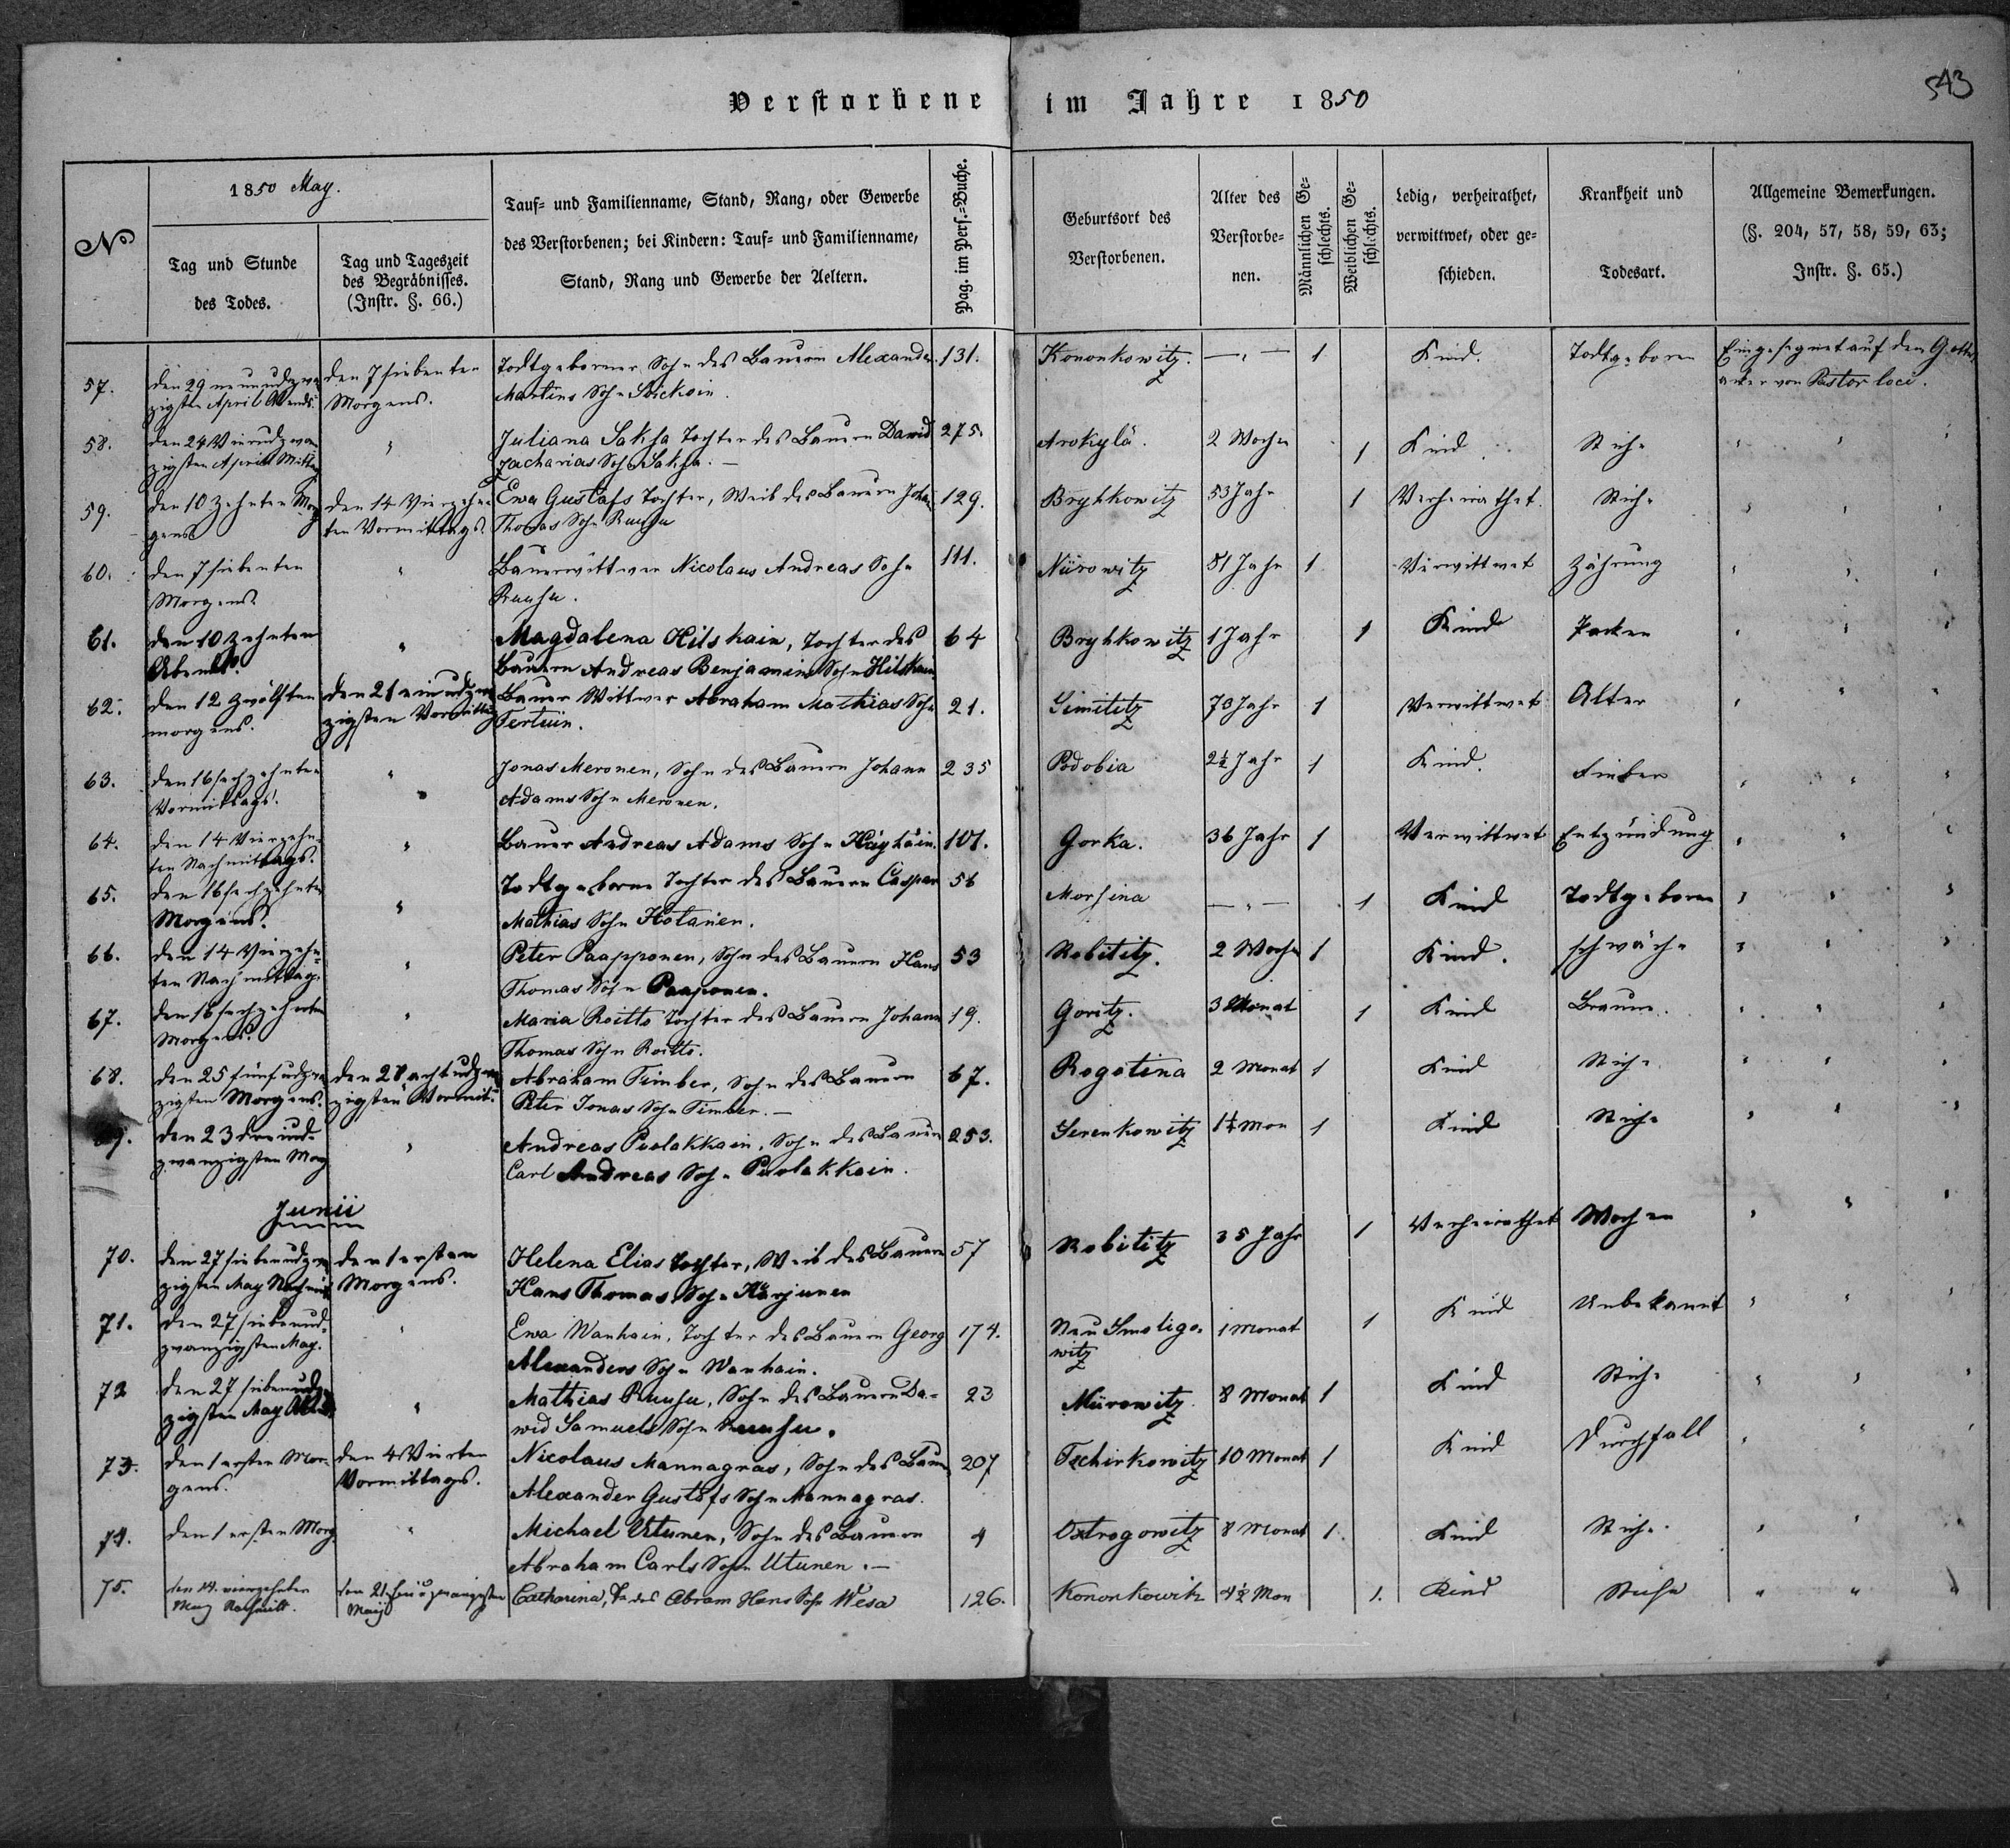 Verstorbene im Jahre 1850
543
No
1850 May.
Tag und Stunde des Todes.
Tag und Tageszeit des Begräbnisses. (Instr. §. 66.)
Tauf- und Familienname, Stand, Rang, oder Gewerbe
des Verstorbenen; bei Kindern: Tauf- und Familienname,
Stand, Rang und Gewerbe der Aeltern.
Pag. im Pers.-Buche.
Geburtsort des Verstorbenen.
Alter des Verstorbe-nen.
Männlichen Ge-schlechts.
Weiblichen Ge-schlechts.
Ledig, verheirathet, verwittwet, oder ge-schieden.
Krankheit und Todesart.
Allgemeine Bemerkungen.
(§. 204, 57, 58, 59, 63; Instr. §. 65.)
57. den 29 neunundzwan den 7 siebenten Todtgeborner Sohn des Bauern Alexander 131. Kononkowitz. —"— 1 Kind. Todtgeboren Eingesegnet auf den Gottes
zigsten April Abends. Morgens. Martins Sohn acker von Pastor loci.
58. den 24 Vierundzwan " Juliana Saksa Tochter des Bauern David 275. Arokylä. 2 Wochen 1 Kind Stiche " " "
zigsten April Mittag Zacharias Sohn Saksa. —
59. den 10 Zehnten Mor den 14 Vierzehn Ewa Gustafs Tochter, Weib des Bauern Johan 129. Bryhkowitz 53 Jahr 1 Verheirathet. Stiche " " "
gens ten Vormittags. Thomas Sohn Ruuhu
60. den 7 siebenten " Bauerwittwer Nicolaus Andreas Sohn 111. Nürowitz 81 Jahr 1 Verwittwet Zährung " " "
Morgens. Ruuhu.
61. den 10 Zehnten " Magdalena Hilskain, Tochter des 64 Bryhkowitz 1 Jahr 1 Kind Pocken " " "
Abends. Bauern Andreas Benjamins Sohn Hilskain
62. den 12 Zwölften den 21 einundzwan Bauer Wittwer Abraham Mathias Sohn 21. Simititz 73 Jahr 1 Verwittwet Alter " " "
morgens. zigsten Vormittag Tertuin.
63. den 16 sechzehnten " Jonas Meronen, Sohn des Bauern Johann 235 Podobia 2½ Jahr 1 Kind. Fieber " " "
Vormittags. " Adams Sohn Meronen.
64. den 14 Vierzehn " Bauer Andreas Adams Sohn Häyhäin. 101. Gorka. 36 Jahr 1 Verwittwet Entzündung " " "
ten Nachmittags.
65. den 16 sechzehnten " Todtgeborne Tochter des Bauern Caspar 56 Morsina —"— 1 Kind Todtgeboren " " "
Morgens. Mathias Sohn Hotanen.
66. den 14 Vierzehn- " Peter Paapponen, Sohn des Bauern Hans 53 Robititz. 2 Wochen 1 Kind. schwäche " " "
ten Nachmittag. Thomas Sohn Paaponen.
67. den 16 sechzehnten " Maria Roitto Tochter des Bauern Johann 19. Goritz. 3 Monat 1 Kind Braune. " " "
Morgens. Thomas Sohn Roitto.
68. den 25 fünfundzwan den 28 achtundzwan Abraham Timber, Sohn des Bauern 67. Rogotina 2 Monat 1 Kind Stiche. " " "
zigsten Morgens. zigsten Vormit: Peter Jonas Sohn Timber. —
69. den 23 dreiund- " Andreas Puolakkain, Sohn des Bauern 253. Serenkowitz 1¼ Mon 1 Kind Stiche " " "
zwanzigsten Morg Carl Andreas Sohn Puolakkain.
Junii
70. den 27 siebenundzwan den 1 ersten Helena Elias Tochter, Weib des Bauern 57 Robititz 35 Jahr 1 Verheirathet Wochen " " "
zigsten May Nachmit Morgens. Hans Thomas Sohn Härjunen
71. den 27 siebenund- " Ewa Wanhain, Tochter des Bauern Georg 174. Neu Smoligo- 1 Monat 1 Kind Unbekannt " " "
zwanzigsten May. Alexanders Sohn Wanhain. witz
72 den 27 siebenundz " Mathias Ruuhu, Sohn des Bauern Da- 23 Mürowitz. 8 Monat 1 Kind Stiche " " "
zigsten May wid Samuels Sohn Ruuhu.
73. den 1 ersten Mor- den 4 Vierten Nicolaus Mannagras, Sohn des Bauern 207 Tschirkowitz 10 Monat 1 Kind Durchfall " " "
gens. Vormittags. Alexander Gustofs Sohn Mannagras.
74. den 1 ersten Morg " Michael Utunen, Sohn des Bauern 4 Ostrogowitz 8 Monat 1. Kind Stiche. " " "
Abraham Carls Sohn Utunen. —
75. den 14. vierzehnten den 21 Catharina, T. des Abram Hans Sohn Wesa 126. Kononkowitz 4½ Mon 1. Kind Stiche " " "
May Nachmitt. May